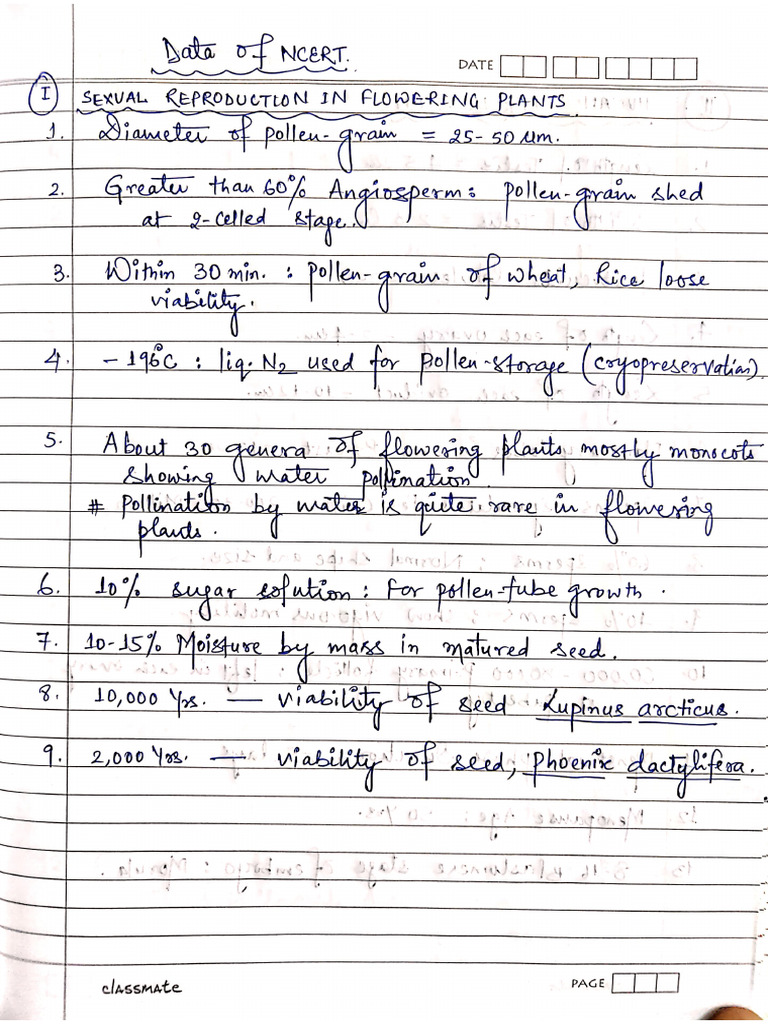 Data of NCERT.
DATE
I SEXUAL REPRODUCTION IN FLOWERING PLANTS
1. Diameter of pollen-grain = 25-50 µm.
2. Greater than 60% Angiosperm: pollen-grain shed
at 2-celled stage.
3. Within 30 min. : pollen-grain of wheat, Rice loose
viability.
4. -196°C : liq. N2 used for pollen-storage (cryopreservation).
5. About 30 genera of flowering plants mostly monocots
showing water pollination.
# Pollination by water is quite rare in flowering
plants.
6. 10% sugar solution : For pollen-tube growth.
7. 10-15% Moisture by mass in matured seed.
8. 10,000 Yrs. — viability of seed Lupinus arcticus.
9. 2,000 Yrs. — viability of seed, Phoenix dactylifera.
classmate
PAGE